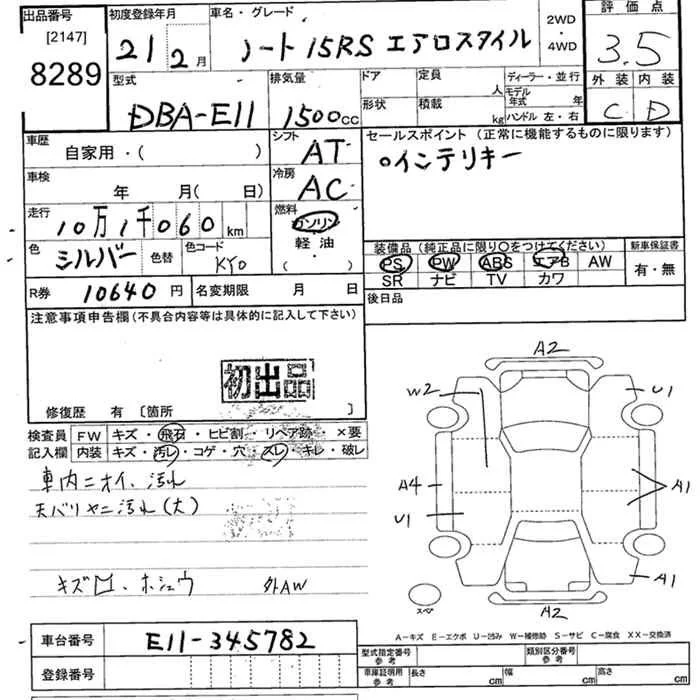 出品番号
[2147]
8289
初度登録年月
21年2月
車名・グレード
ノート 15RS エアロスタイル
2WD
・
4WD
評価点
3.5
外装 内装
C D
型式
DBA-E11
排気量
1500cc
ドア
形状
定員
人
積載
kg
ディーラー・並行
モデル年式 年
ハンドル 左・右
車歴
自家用・( )
シフト
AT
セールスポイント (正常に機能するものに限ります)
○インテリキー
車検
年 月( 日)
冷房
AC
走行
10万1千060km
燃料
ガソリン
軽油
( ・ )
色
シルバー
色替
色コード
KY0
装備品(純正品に限り○をつけてください)
PS PW ABS エアB AW
SR ナビ TV カワ
新車保証書
有・無
R券
10640円
名変期限 月 日
後日品
注意事項申告欄(不具合内容等は具体的に記入して下さい)
初出品
修復歴 有 [箇所 ]
検査員記入欄
FW キズ・飛石・ヒビ割・リペア跡・×要
内装 キズ・汚レ・コゲ・穴・スレ・キレ・破レ
車内ニオイ、汚れ
天バリヤニ汚れ(大)
キズ凹、ホシュウ 外AW
A2
W2
U1
A4
A1
U1
A1
A2
スペ
A-キズ E-エクボ U-凹み W-補修跡 S-サビ C-腐食 XX-交換済
車台番号
E11-345782
登録番号
型式指定番号
参考
類別区分番号
参考
車庫証明用
参考
長さ cm
幅 cm
高さ cm